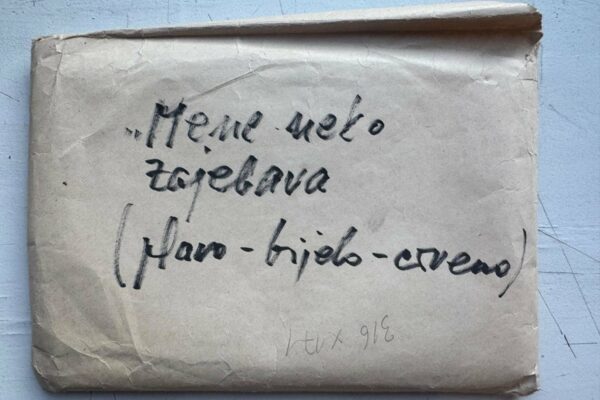 „Mene neko
zajebava
(plavo-bijelo-crveno)
316 x 171